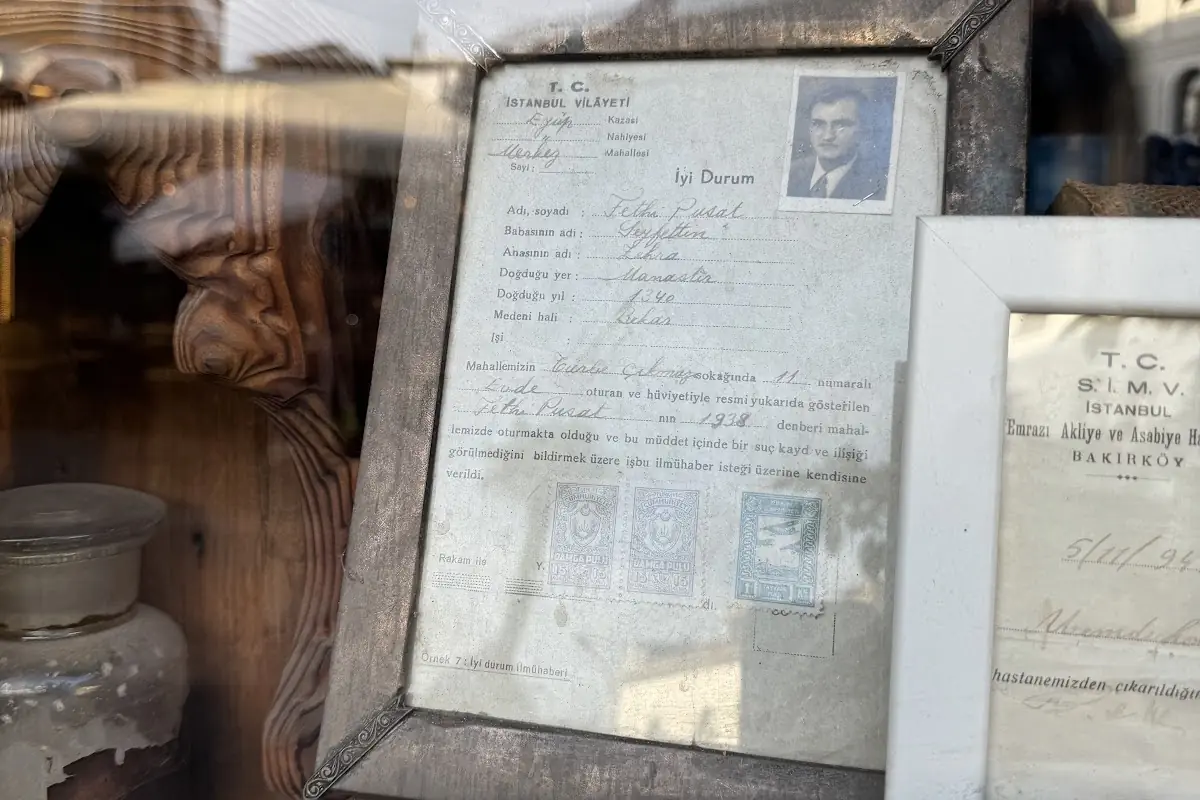 T. C.
İSTANBUL VİLÂYETİ
Eyüp Kazası
Nahiyesi
Merkez Mahallesi
Sayı :
İyi Durum
Adı, soyadı : Fethi Pusat
Babasının adı : Seyfettin
Anasının adı :
Doğduğu yer : Manastır
Doğduğu yıl : 1340
Medeni hali : Bekâr
İşi :
Mahallemizin Türbe Çıkmaz sokağında 11 numaralı
Evde oturan ve hüviyetiyle resmi yukarıda gösterilen
Fethi Pusat nın 1938 denberi mahal-
lemizde oturmakta olduğu ve bu müddet içinde bir suç kayd ve ilişiği
görülmediğini bildirmek üzere işbu ilmühaber isteği üzerine kendisine
verildi.
DAMGA PULU
15 15
DAMGA PULU
15 15
Rakam ile Y.
dı.
Örnek 7 : İyi durum ilmühaberi
T. C.
S. İ. M. V.
İSTANBUL
Emrazı Akliye ve Asabiye
BAKIRKÖY
5/11/94
hastanemizden çıkarıldığın